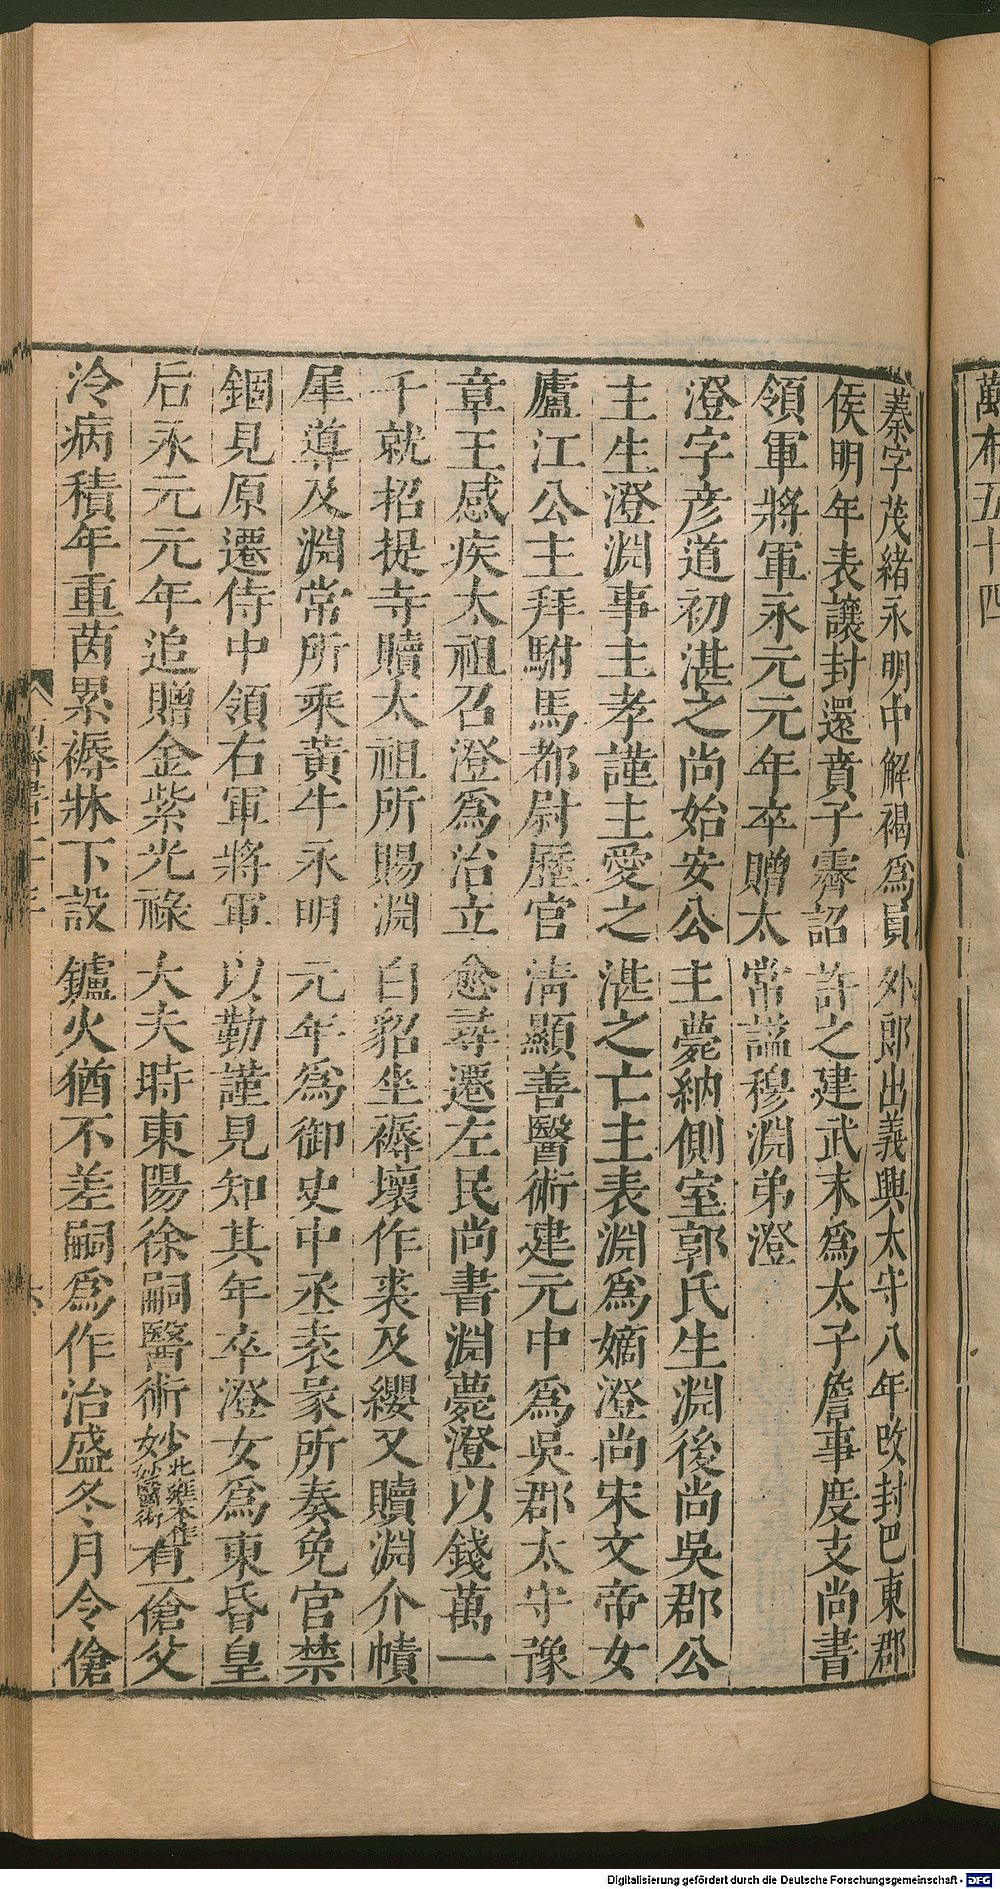 萬布五十四
蓁字茂緒永明中解褐爲員外郎出義興太守八年改封巴東郡
侯明年表讓封還賁子霽詔許之建武末爲太子詹事度支尚書
領軍將軍永元元年卒贈太常謚穆淵弟澄
澄字彦道初湛之尚始安公主薨納側室郭氏生淵後尚吳郡公
主生澄淵事主孝謹主愛之湛之亡主表淵爲嫡澄尚宋文帝女
廬江公主拜駙馬都尉歷官清顯善醫術建元中爲吳郡太守豫
章王感疾太祖召澄爲治立愈尋遷左民尚書淵薨澄以錢萬一
千就招提寺贖太祖所賜淵白貂坐褥壞作裘及纓又贖淵介幘
犀導及淵常所乘黃牛永明元年爲御史中丞袁彖所奏免官禁
錮見原遷侍中領右軍將軍以勤謹見知其年卒澄女爲東昏皇
后永元元年追贈金紫光祿大夫時東陽徐嗣醫術妙北雍本作妙醫術有一傖父
冷病積年重茵累褥牀下設鑪火猶不差嗣爲作治盛冬月令傖
Digitalisierung gefördert durch die Deutsche Forschungsgemeinschaft - DFG